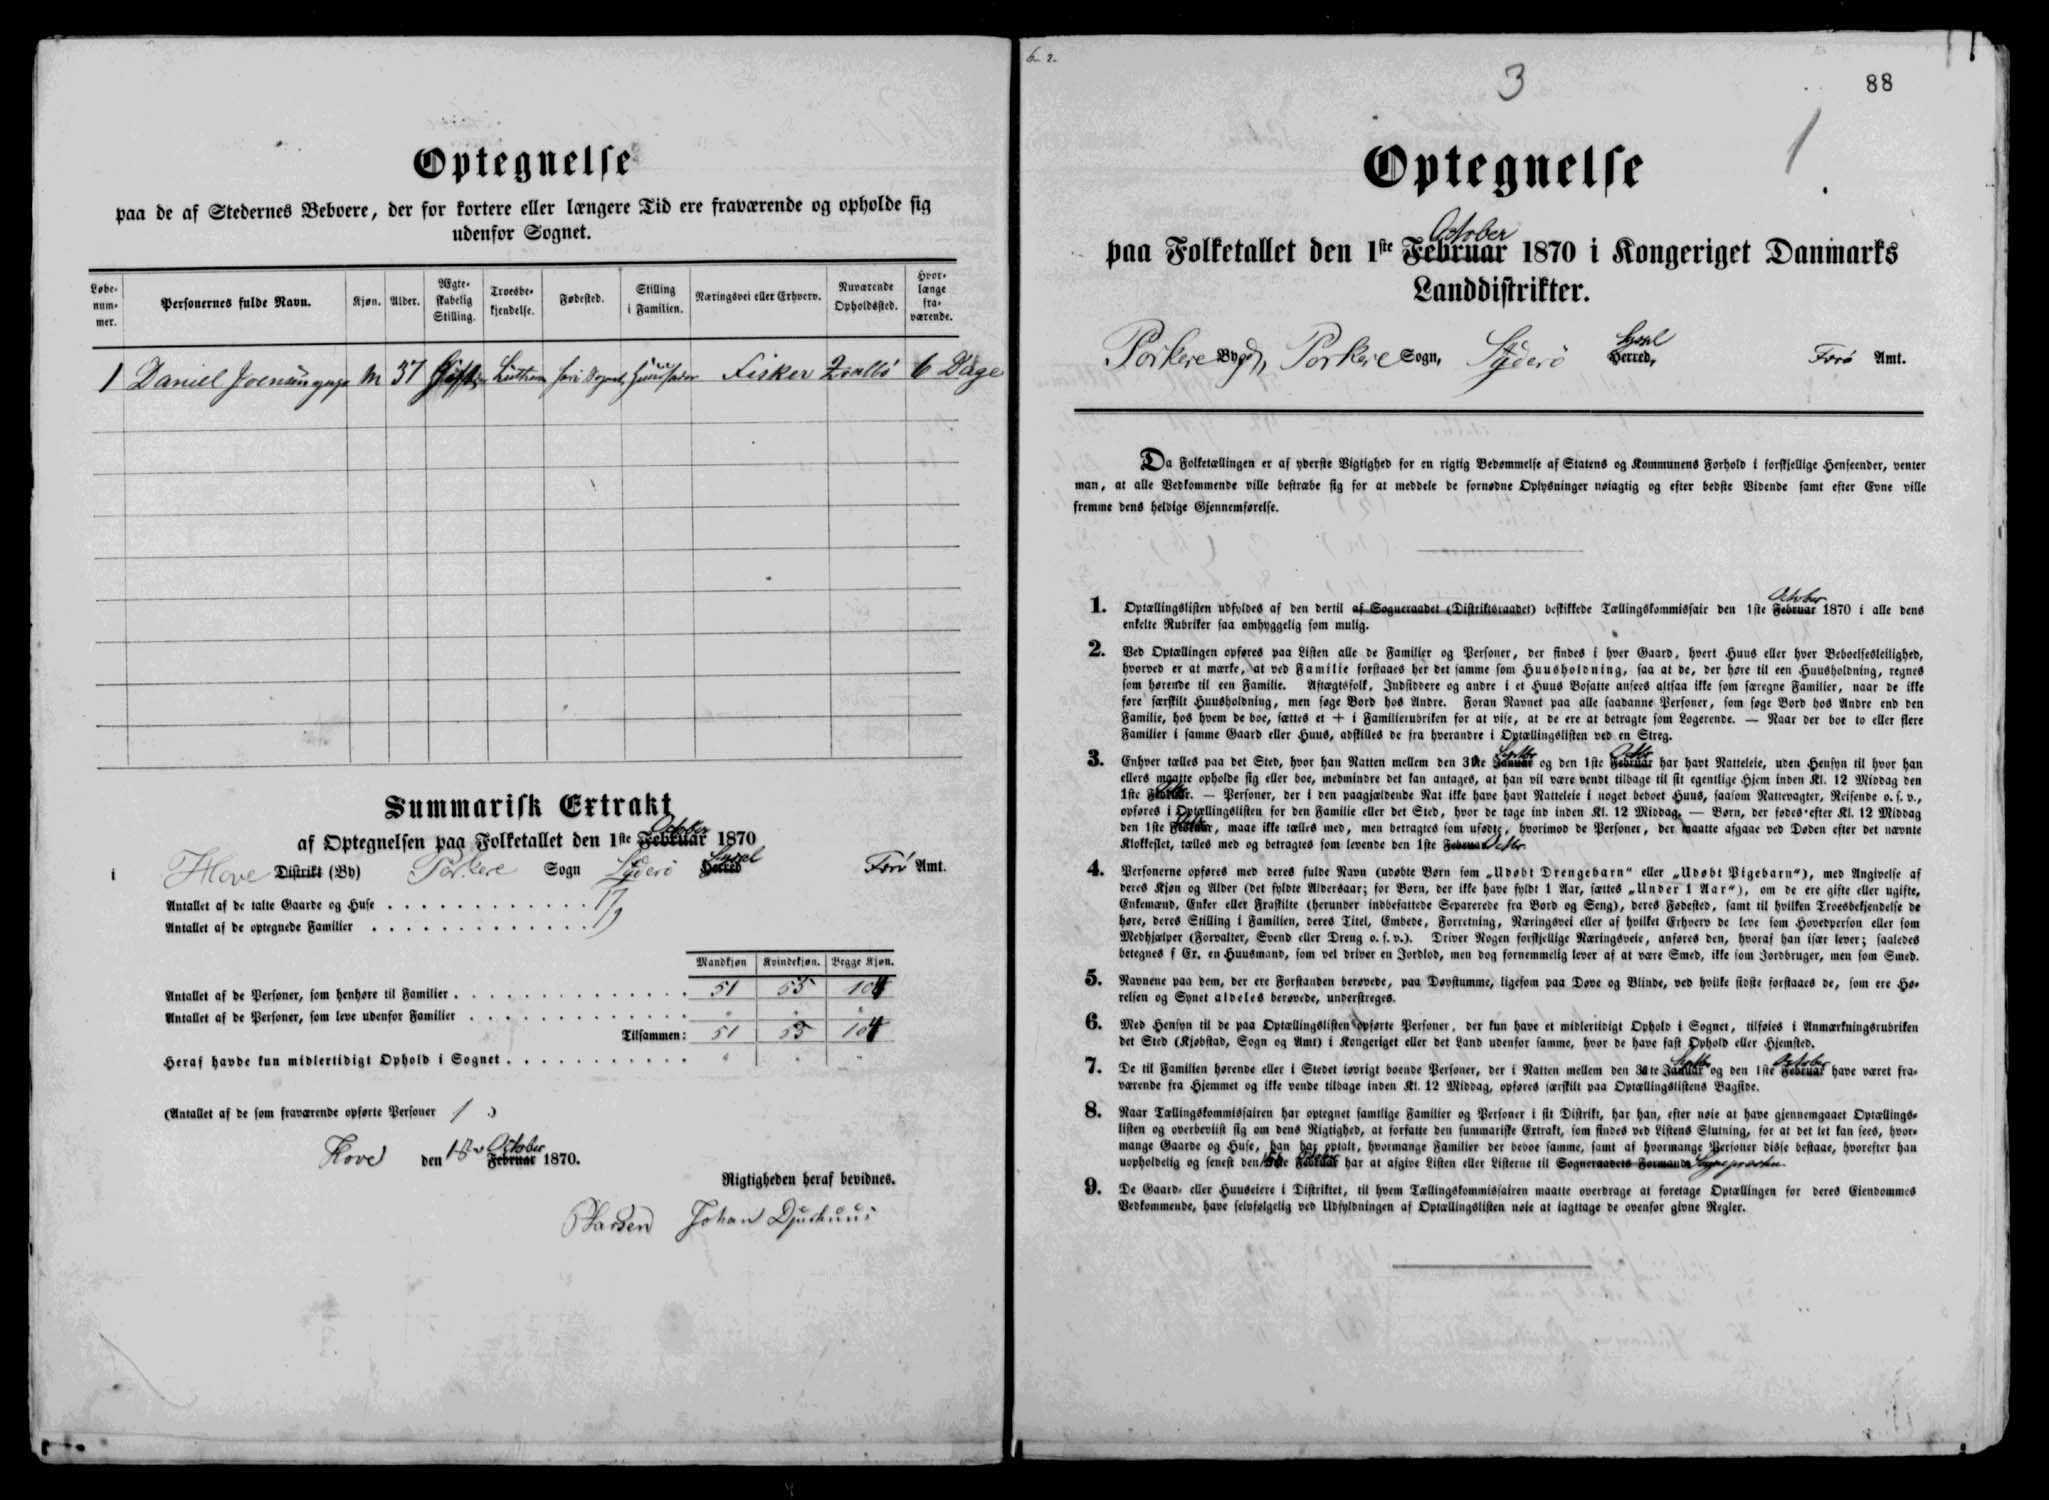 Optegnelse
paa de af Stedernes Beboere, der for kortere eller længere Tid ere fraværende og opholde sig
udenfor Sognet.
Løbe-nummer. Personernes fulde Navn. Kjøn. Alder. Ægteskabelig Stilling. Troesbekjendelse. Fødested. Stilling i Familien. Næringsvei eller Erhverv. Nuværende Opholdssted. Hvorlænge fraværende.
1 Daniel M 37 Gift Huusfader Fisker 6 Dage
Summarisk Extrakt
October
af Optegnelsen paa Folketallet den 1ste Februar 1870
i Hove Distrikt (By) Porkere Sogn Syderø Sysel Herred Færø Amt.
Antallet af de talte Gaarde og Huse 17
Antallet af de optegnede Familier
Mandkjøn Kvindekjøn. Begge Kjøn.
Antallet af de Personer, som henhøre til Familier 51 53 104
Antallet af de Personer, som leve udenfor Familier " " "
Tilsammen: 51 53 104
Heraf havde kun midlertidigt Ophold i Sognet " " "
(Antallet af de som fraværende opførte Personer 1 )
Hove den 1ste October Februar 1870.
Rigtigheden heraf bevidnes.
Johan Djurhuus
6. 2.
3
88
1
Optegnelse
October
paa Folketallet den 1ste Februar 1870 i Kongeriget Danmarks
Landdistrikter.
Porkere Bygd, Porkere Sogn, Syderø Sysel Herred, Færø Amt.
Da Folketællingen er af yderste Vigtighed for en rigtig Bedømmelse af Statens og Kommunens Forhold i forskjellige Henseender, venter
man, at alle Vedkommende ville bestræbe sig for at meddele de fornødne Oplysninger nøiagtig og efter bedste Vidende samt efter Evne ville
fremme dens heldige Gjennemførelse.
1. Optællingslisten udfyldes af den dertil af Sogneraadet (Distriktsraadet) beskikkede Tællingskommissair den 1ste October Februar 1870 i alle dens
enkelte Rubriker saa omhyggelig som mulig.
2. Ved Optællingen opføres paa Listen alle de Familier og Personer, der findes i hver Gaard, hvert Huus eller hver Beboelsesleilighed,
hvorved er at mærke, at ved Familie forstaaes her det samme som Huusholdning, saa at de, der høre til een Huusholdning, regnes
som hørende til een Familie. Aftægtsfolk, Indsiddere og andre i et Huus Bosatte ansees altsaa ikke som særegne Familier, naar de ikke
føre særskilt Huusholdning, men søge Bord hos Andre. Foran Navnet paa alle saadanne Personer, som søge Bord hos Andre end den
Familie, hos hvem de boe, sættes et + i Familierubriken for at vise, at de ere at betragte som Logerende. — Naar der boe to eller flere
Familier i samme Gaard eller Huus, adskilles de fra hverandre i Optællingslisten ved en Streg.
3. Enhver tælles paa det Sted, hvor han Natten mellem den 30te Septbr Januar og den 1ste Octbr Februar har havt Natteleie, uden Hensyn til hvor han
ellers maatte opholde sig eller boe, medmindre det kan antages, at han vil være vendt tilbage til sit egentlige Hjem inden Kl. 12 Middag den
1ste Octbr Februar. — Personer, der i den paagjældende Nat ikke have havt Natteleie i noget beboet Huus, saasom Nattevagter, Reisende o. s. v.,
opføres i Optællingslisten for den Familie eller det Sted, hvor de tage ind inden Kl. 12 Middag. — Børn, der fødes efter Kl. 12 Middag
den 1ste Octbr Februar, maae ikke tælles med, men betragtes som ufødte, hvorimod de Personer, der maatte afgaae ved Døden efter det nævnte
Klokkeslet, tælles med og betragtes som levende den 1ste Februar Octbr.
4. Personerne opføres med deres fulde Navn (udøbte Børn som „Udøbt Drengebarn“ eller „Udøbt Pigebarn“), med Angivelse af
deres Kjøn og Alder (det fyldte Aldersaar; for Børn, der ikke have fyldt 1 Aar, sættes „Under 1 Aar“), om de ere gifte eller ugifte,
Enkemænd, Enker eller Fraskilte (herunder indbefattede Separerede fra Bord og Seng), deres Fødested, samt til hvilken Troesbekjendelse de
høre, deres Stilling i Familien, deres Titel, Embede, Forretning, Næringsvei eller af hvilket Erhverv de leve som Hovedperson eller som
Medhjælper (Forvalter, Svend eller Dreng o. s. v.). Driver Nogen forskjellige Næringsveie, anføres den, hvoraf han især lever; saaledes
betegnes f Ex. en Huusmand, som vel driver en Jordlod, men dog fornemmelig lever af at være Smed, ikke som Jordbruger, men som Smed.
5. Navnene paa dem, der ere Forstanden berøvede, paa Døvstumme, ligesom paa Døve og Blinde, ved hvilke sidste forstaaes de, som ere Hø-
relsen og Synet aldeles berøvede, understreges.
6. Med Hensyn til de paa Optællingslisten opførte Personer, der kun have et midlertidigt Ophold i Sognet, tilføies i Anmærkningsrubriken
det Sted (Kjøbstad, Sogn og Amt) i Kongeriget eller det Land udenfor samme, hvor de have fast Ophold eller Hjemsted.
7. De til Familien hørende eller i Stedet iøvrigt boende Personer, der i Natten mellem den 30te Septbr Januar og den 1ste October Februar have været fra-
værende fra Hjemmet og ikke vende tilbage inden Kl. 12 Middag, opføres særskilt paa Optællingslistens Bagside.
8. Naar Tællingskommissairen har optegnet samtlige Familier og Personer i sit Distrikt, har han, efter nøie at have gjennemgaaet Optællings-
listen og overbeviist sig om dens Rigtighed, at forfatte den summariske Extrakt, som findes ved Listens Slutning, for at det let kan sees, hvor-
mange Gaarde og Huse, han har optalt, hvormange Familier der beboe samme, samt af hvormange Personer disse bestaae, hvorefter han
uopholdelig og senest den Februar har at afgive Listen eller Listerne til Sogneraadets Formand Sognepræsten.
9. De Gaard- eller Huuseiere i Distriktet, til hvem Tællingskommissairen maatte overdrage at foretage Optællingen for deres Eiendommes
Vedkommende, have selvfølgelig ved Udfyldningen af Optællingslisten nøie at iagttage de ovenfor givne Regler.